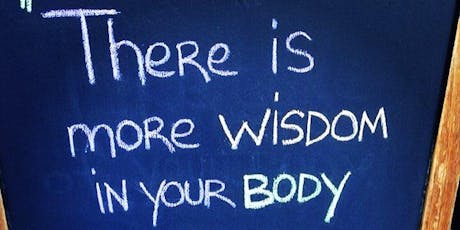 "There is
more WISDOM
in YOUR BODY